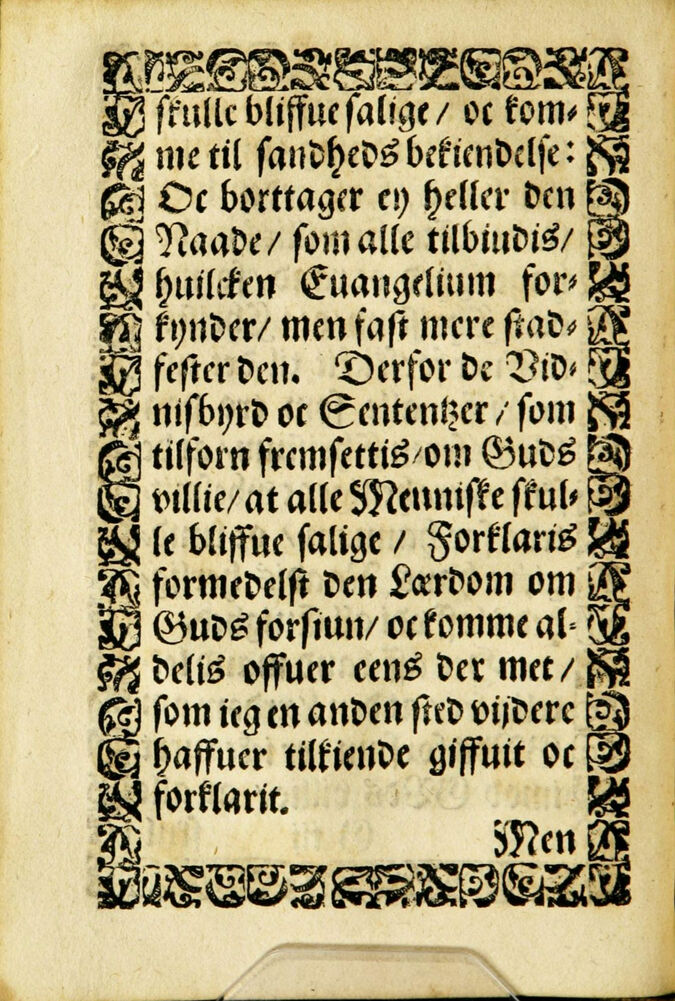 skulle bliffue salige / oc kom⸗
me til sandheds bekiendelse:
Oc borttager ey heller den
Naade / som alle tilbiudis /
huilcken Euangelium for⸗
kynder / men fast mere stad⸗
fester den. Derfor de Vid⸗
nisbyrd oc Sententzer / som
tilforn fremsettis / om Guds
villie / at alle Menniske skul⸗
le bliffue salige / Forklaris
formedelst den Lærdom om
Guds forsiun / oc komme al⸗
delis offuer eens der met /
som ieg en anden sted vijdere
haffuer tilkiende giffuit oc
forklarit.
Men